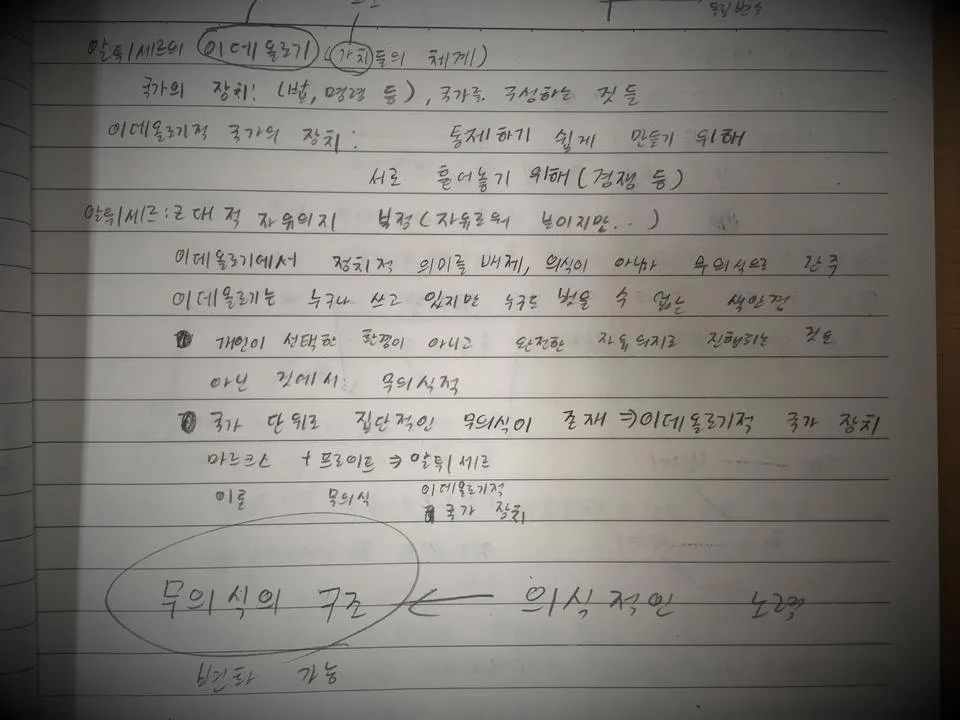 독립변수
알튀세르의 이데올로기 (가치들의 체계)
국가의 장치: (법, 명령 등), 국가를 구성하는 것들
이데올로기적 국가의 장치: 통제하기 쉽게 만들기 위해
서로 흩어놓기 위해(경쟁 등)
알튀세르:근대적 자유의지 부정(자유로워 보이지만...)
이데올로기에서 정치적 의미를 배제, 의식이 아니라 무의식으로 간주
이데올로기는 누구나 쓰고 있지만 누구도 벗을 수 없는 색안경
개인이 선택한 환경이 아니고 완전한 자유의지로 진행되는 것도
아닌 것에서 무의식적
국가 단위로 집단적인 무의식이 존재 ⇒이데올로기적 국가 장치
마르크스 + 프로이트 ⇒ 알튀세르
이론 무의식 이데올로기적
국가 장치
무의식의 구조 ← 의식적인 노력
변화 가능